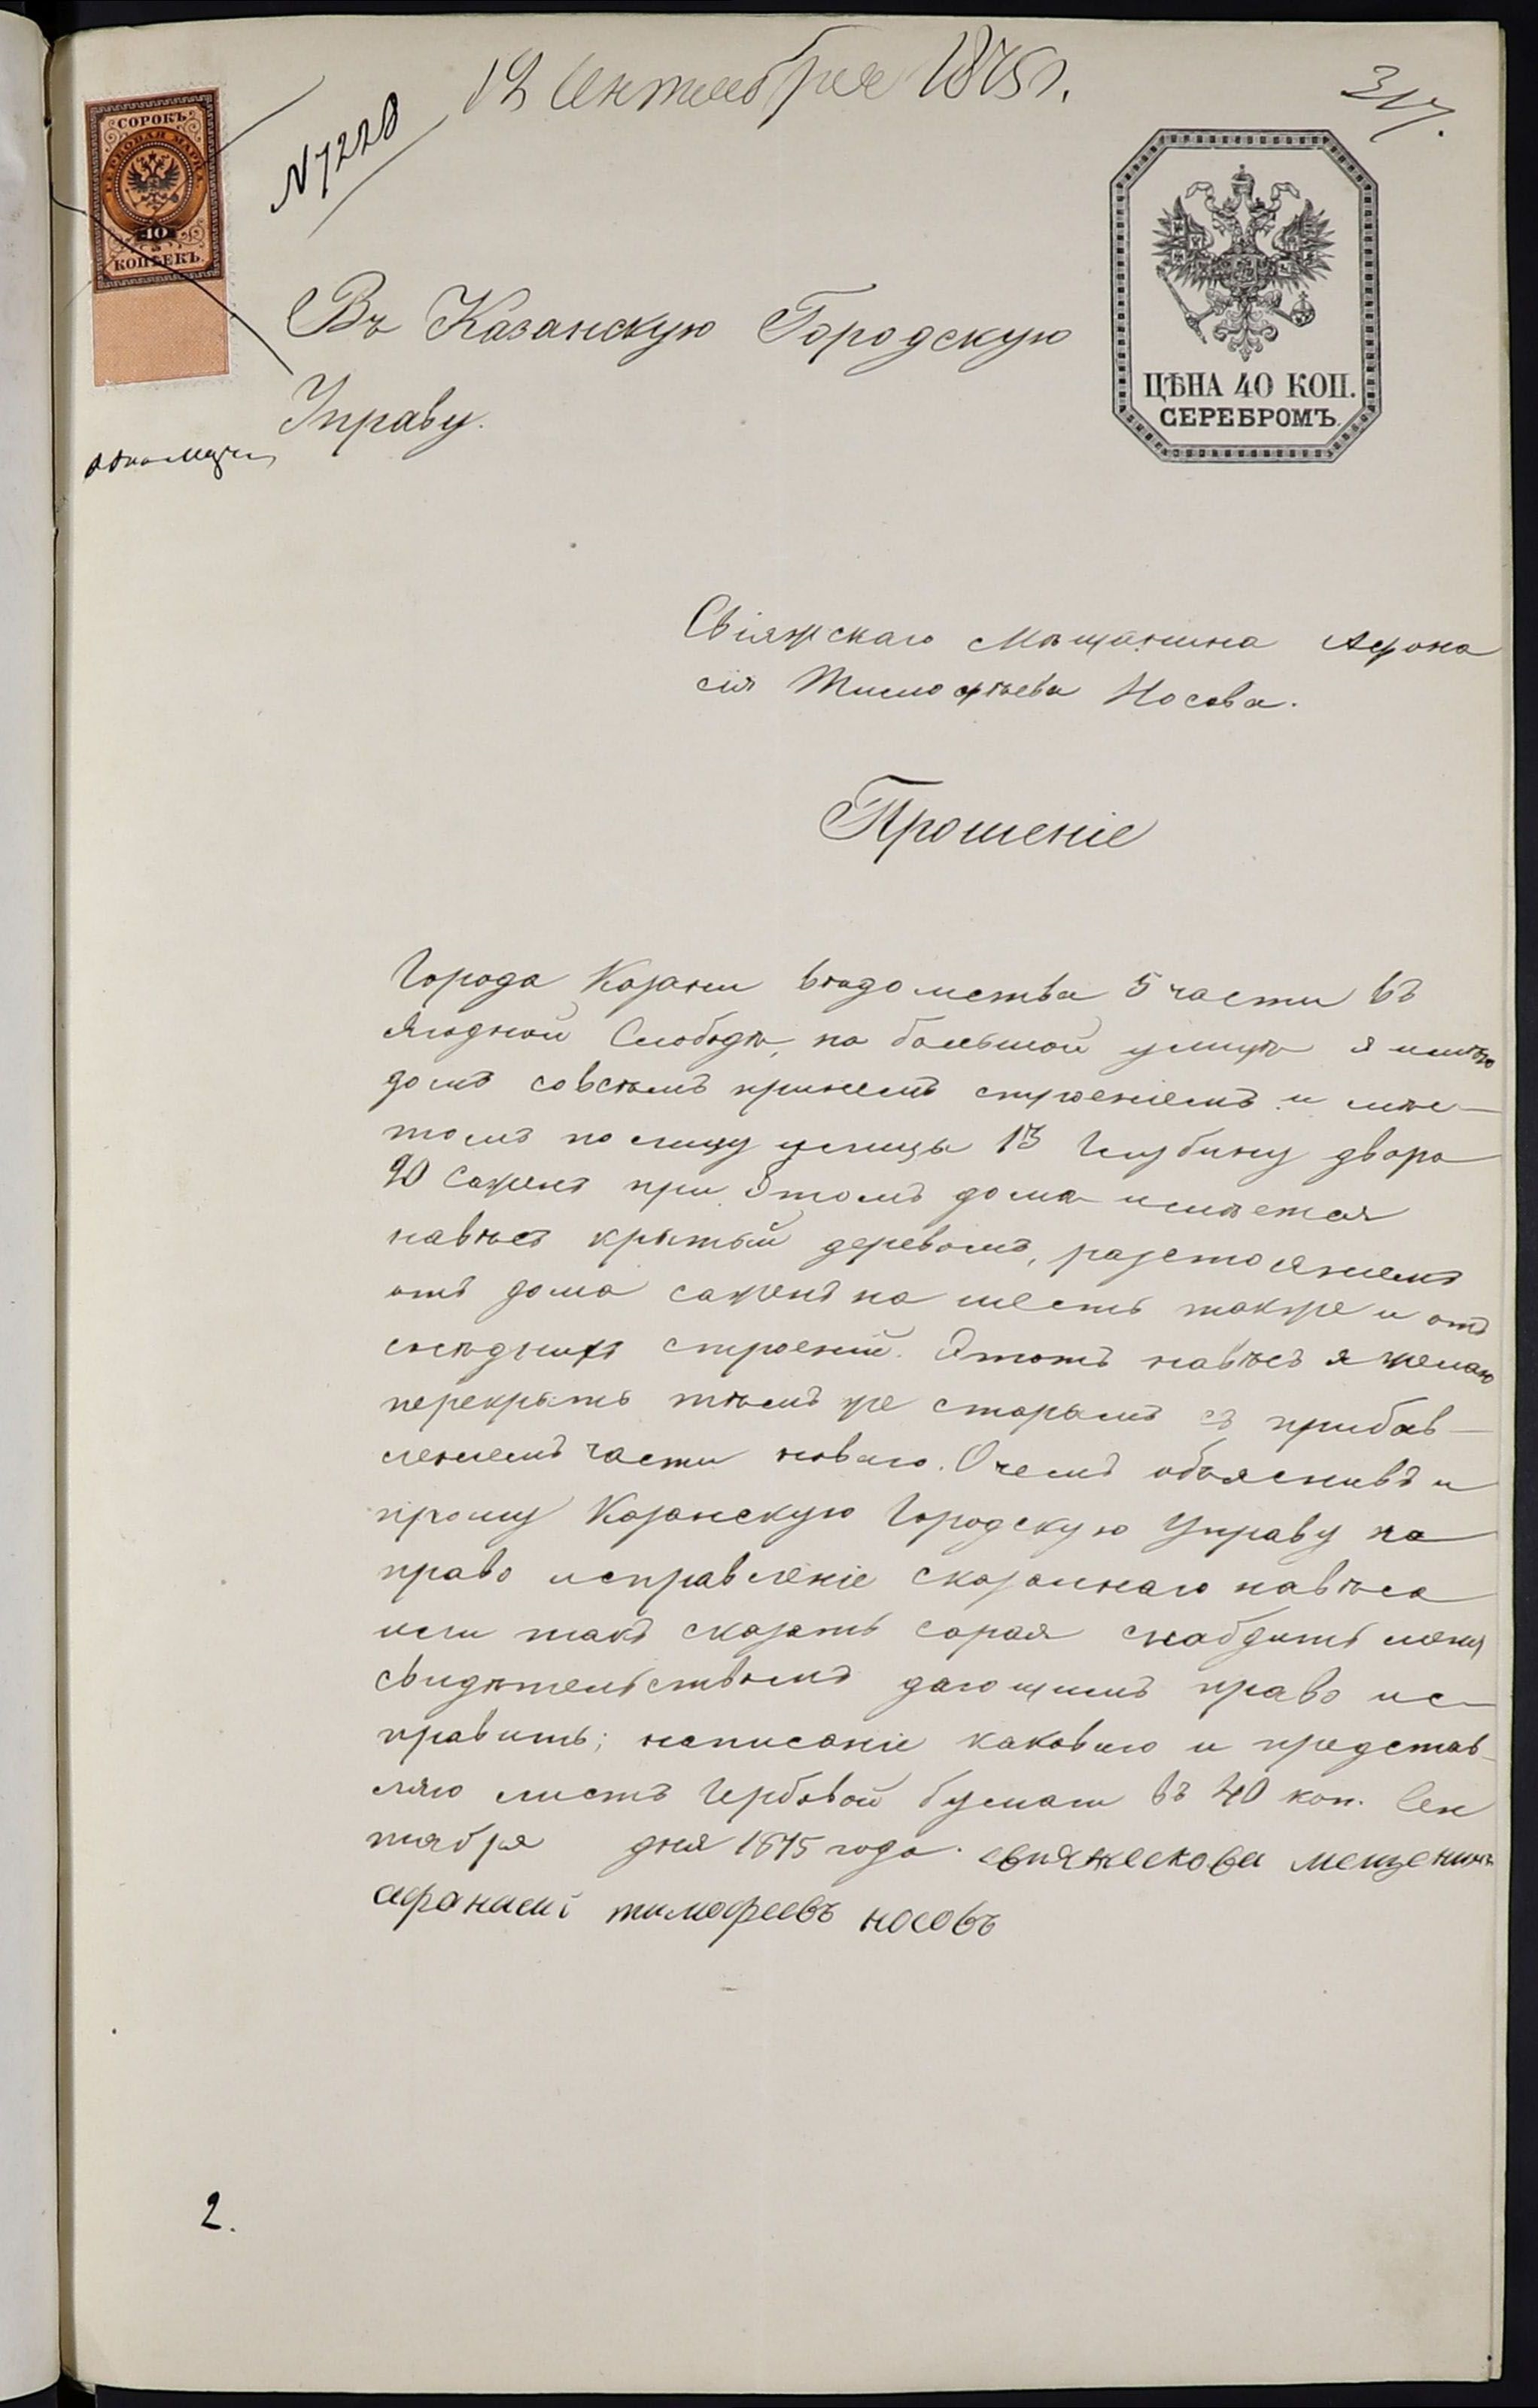 12 Сентября 1875 г.
317.
N 7228
СОРОКЪ
ГЕРБОВАЯ МАРКА
40
КОПѢЕКЪ
ЦѢНА 40 КОП.
СЕРЕБРОМЪ.
Въ Казанскую Городскую
Управу.
Свіяжскаго Мѣщанина Афона
сія Тимофѣева Носова.
Прошеніе
Города Казани вѣдомства 5 части въ
Ягодной Слободѣ, на большой улицѣ я имѣю
домъ совсѣмъ принемъ строеніемъ и мѣс-
томъ по лицу улицы 13 Глубину двора
20 Сажень при этомъ доме имѣется
навѣсъ крытый деревомъ, разстояніемъ
отъ дома сажень на шесть также и отъ
сосѣднихъ строеній. Этотъ навѣсъ я желаю
перекрыть тѣмъ же старымъ съ прибав-
лениемъ части новаго. Очемъ объяснивъ и
прошу Казанскую Городскую Управу на
право исправленіе сказаннаго навѣса
или такъ сказать сарая снабдить меня
свидѣтельствомъ дающимъ право ис-
править; написаніе каковаго и представ-
ляю листъ Гербовой бумаги въ 40 коп. Сен
тября дня 1875 года. свияжескова мещенинъ
афанасиі тимофеевъ носовъ
2.